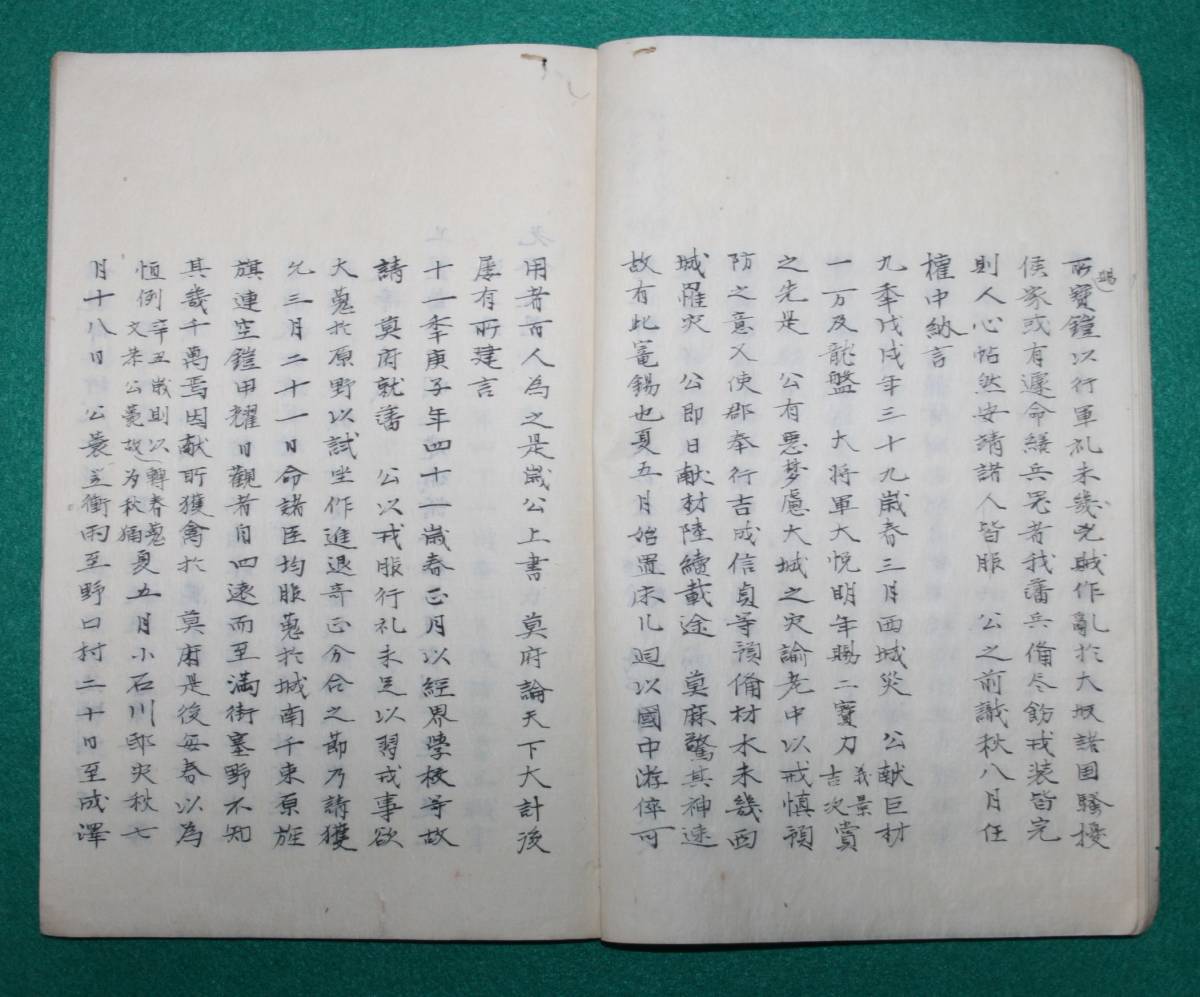 所賜寶鎧以行軍礼未幾兇賊作亂於大坂諸国騒擾
侯家或有遽命繕兵器者我藩兵備尽飭戎装皆完
則人心帖然安靖諸人皆服 公之前識秋八月任
權中納言
九季戊戌年三十九歳春三月西城災 公献巨材
一万及龍盤 大将軍大悦明年賜二寶刀義景吉次賞
之先是 公有悪梦慮大城之灾諭老中以戒慎預
防之意又使郡奉行吉成信貞等預備材木未幾西
城罹灾 公即日献材陸續載途 莫府驚其神速
故有此寵錫也夏五月始置床几廻以國中游倅可
用者百人為之是歳公上書 莫府論天下大計後
屡有所建言
十一季庚子年四十一歳春正月以經界學校等故
請 莫府就藩 公以戎服行礼未足以習戎事欲
大蒐於原野以試坐作進退奇正分合之節乃請獲
允三月二十一日命諸臣均服蒐於城南千束原旌
旗連空鎧甲耀日觀者自四遠而至満街塞野不知
其幾千萬焉因献所獲禽於 莫府是後毎春以為
恒例辛丑歳則以文恭公薨故轉春蒐為秋獮夏五月小石川邸灾秋七
月十八日 公蓑笠衝雨至野口村二十日至成澤